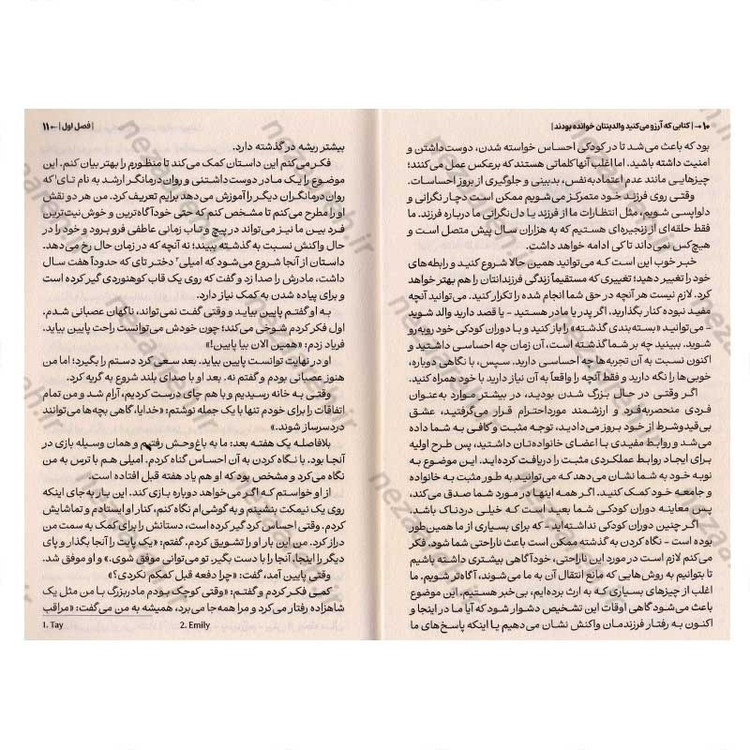 ۱۰ → | کتابی که آرزو می‌کنید والدینتان خوانده بودند |
بود که باعث می‌شد تا در کودکی احساس خواسته شدن، دوست‌داشتن و
امنیت داشته باشید. اما اغلب آنها کلماتی هستند که برعکس عمل می‌کنند؛
چیزهایی مانند عدم اعتمادبه‌نفس، بدبینی و جلوگیری از بروز احساسات.
وقتی روی فرزند خود متمرکز می‌شویم ممکن است دچار نگرانی و
دلواپسی شویم، مثل انتظارات ما از فرزند یا دل نگرانی ما درباره فرزند. ما
فقط حلقه‌ای از زنجیره‌ای هستیم که به هزاران سال پیش متصل است و
هیچ‌کس نمی‌داند تا کی ادامه خواهد داشت.
خبر خوب این است که می‌توانید همین حالا شروع کنید و رابطه‌های
خود را تغییر دهید؛ تغییری که مستقیماً زندگی فرزندانتان را هم بهتر خواهد
کرد. لازم نیست هر آنچه در حق شما انجام شده را تکرار کنید. می‌توانید آنچه
مفید نبوده کنار بگذارید. اگر پدر یا مادر هستید - یا قصد دارید والد شوید
- می‌توانید «بسته‌بندی گذشته» را باز کنید و با دوران کودکی خود روبه‌رو
شوید. ببینید چه بر شما گذشته است، آن زمان چه احساسی داشتید و
اکنون نسبت به آن تجربه‌ها چه احساسی دارید. سپس، با نگاهی دوباره،
خوبی‌ها را نگه دارید و فقط آنچه را واقعاً به آن نیاز دارید با خود همراه کنید.
اگر وقتی در حال بزرگ شدن بودید، در بیشتر موارد به‌عنوان
فردی منحصربه‌فرد و ارزشمند مورداحترام قرار می‌گرفتید، عشق
بی‌قیدوشرط از خود بروز می‌دادید، توجه مثبت و کافی به شما داده
می‌شد و روابط مفیدی با اعضای خانواده‌تان داشتید، پس طرح اولیه
برای ایجاد روابط عملکردی مثبت را دریافت کرده‌اید. این موضوع به
نوبه خود به شما نشان می‌دهد که می‌توانید به طور مثبت به خانواده
و جامعه خود کمک کنید. اگر همه اینها در مورد شما صدق می‌کند،
پس معاینه دوران کودکی شما بعید است که خیلی دردناک باشد.
اگر چنین دوران کودکی نداشته‌اید - که برای بسیاری از ما همین‌طور
بوده است - نگاه کردن به گذشته ممکن است باعث ناراحتی شما شود. فکر
می‌کنم لازم است در مورد این ناراحتی، خودآگاهی بیشتری داشته باشیم
تا بتوانیم به روش‌هایی که مانع انتقال آن به ما می‌شوند، آگاه‌تر شویم. ما
اغلب از چیزهای بسیاری که به ارث برده‌ایم، بی‌خبر هستیم. این موضوع
باعث می‌شود گاهی اوقات این تشخیص دشوار شود که آیا ما در اینجا و
اکنون به رفتار فرزندمان واکنش نشان می‌دهیم یا اینکه پاسخ‌های ما
| فصل اول | ← ۱۱
بیشتر ریشه در گذشته دارد.
فکر می‌کنم این داستان کمک می‌کند تا منظورم را بهتر بیان کنم. این
موضوع را یک مادر دوست داشتنی و روان درمانگر ارشد به نام تای¹ که
روان درمانگران دیگر را آموزش می‌دهد برایم تعریف کرد. من هر دو نقش
او را مطرح می‌کنم تا مشخص کنم که حتی خودآگاه‌ترین و خوش نیت‌ترین
فرد بین ما نیز می‌تواند در پیچ و تاب زمانی عاطفی فرو برود و خود را در
حال واکنش نسبت به گذشته ببیند؛ نه آنچه که در زمان حال رخ می‌دهد.
داستان از آنجا شروع می‌شود که امیلی² دختر تای که حدوداً هفت سال
داشت، مادرش را صدا زد و گفت که روی یک قاب کوهنوردی گیر کرده است
و برای پیاده شدن به کمک نیاز دارد.
به او گفتم پایین بیاید و وقتی گفت نمی‌تواند، ناگهان عصبانی شدم.
اول فکر کردم شوخی می‌کند؛ چون خودش می‌توانست راحت پایین بیاید.
فریاد زدم: «همین الان بیا پایین!»
او در نهایت توانست پایین بیاید. بعد سعی کرد دستم را بگیرد؛ اما من
هنوز عصبانی بودم و گفتم نه. بعد او با صدای بلند شروع به گریه کرد.
وقتی به خانه رسیدیم و با هم چای درست کردیم، آرام شد و من تمام
اتفاقات را برای خودم تنها با یک جمله نوشتم: «خدایا، گاهی بچه‌ها می‌توانند
دردسرساز شوند.»
بلافاصله یک هفته بعد: ما به باغ‌وحش رفتیم و همان وسیله بازی در
آنجا بود. با نگاه کردن به آن احساس گناه کردم. امیلی هم با ترس به من
نگاه می‌کرد و مشخص بود که او هم یاد هفته قبل افتاده است.
از او خواستم که اگر می‌خواهد دوباره بازی کند. این بار به جای اینکه
روی یک نیمکت بنشینم و به گوشی‌ام نگاه کنم، کنار او ایستادم و تماشایش
کردم. وقتی احساس کرد گیر کرده است، دستانش را برای کمک به سمت من
دراز کرد. من این بار او را تشویق کردم. گفتم: «یک پایت را آنجا بگذار و پای
دیگر را اینجا. آنجا را با دست بگیر. تو می‌توانی موفق شوی.» و او موفق شد.
وقتی پایین آمد، گفت: «چرا دفعه قبل کمکم نکردی؟»
کمی فکر کردم و گفتم: «وقتی کوچک بودم مادربزرگ با من مثل یک
شاهزاده رفتار می‌کرد و مرا همه‌جا می‌برد، همیشه به من می‌گفت: «مراقب
1. Tay 2. Emily